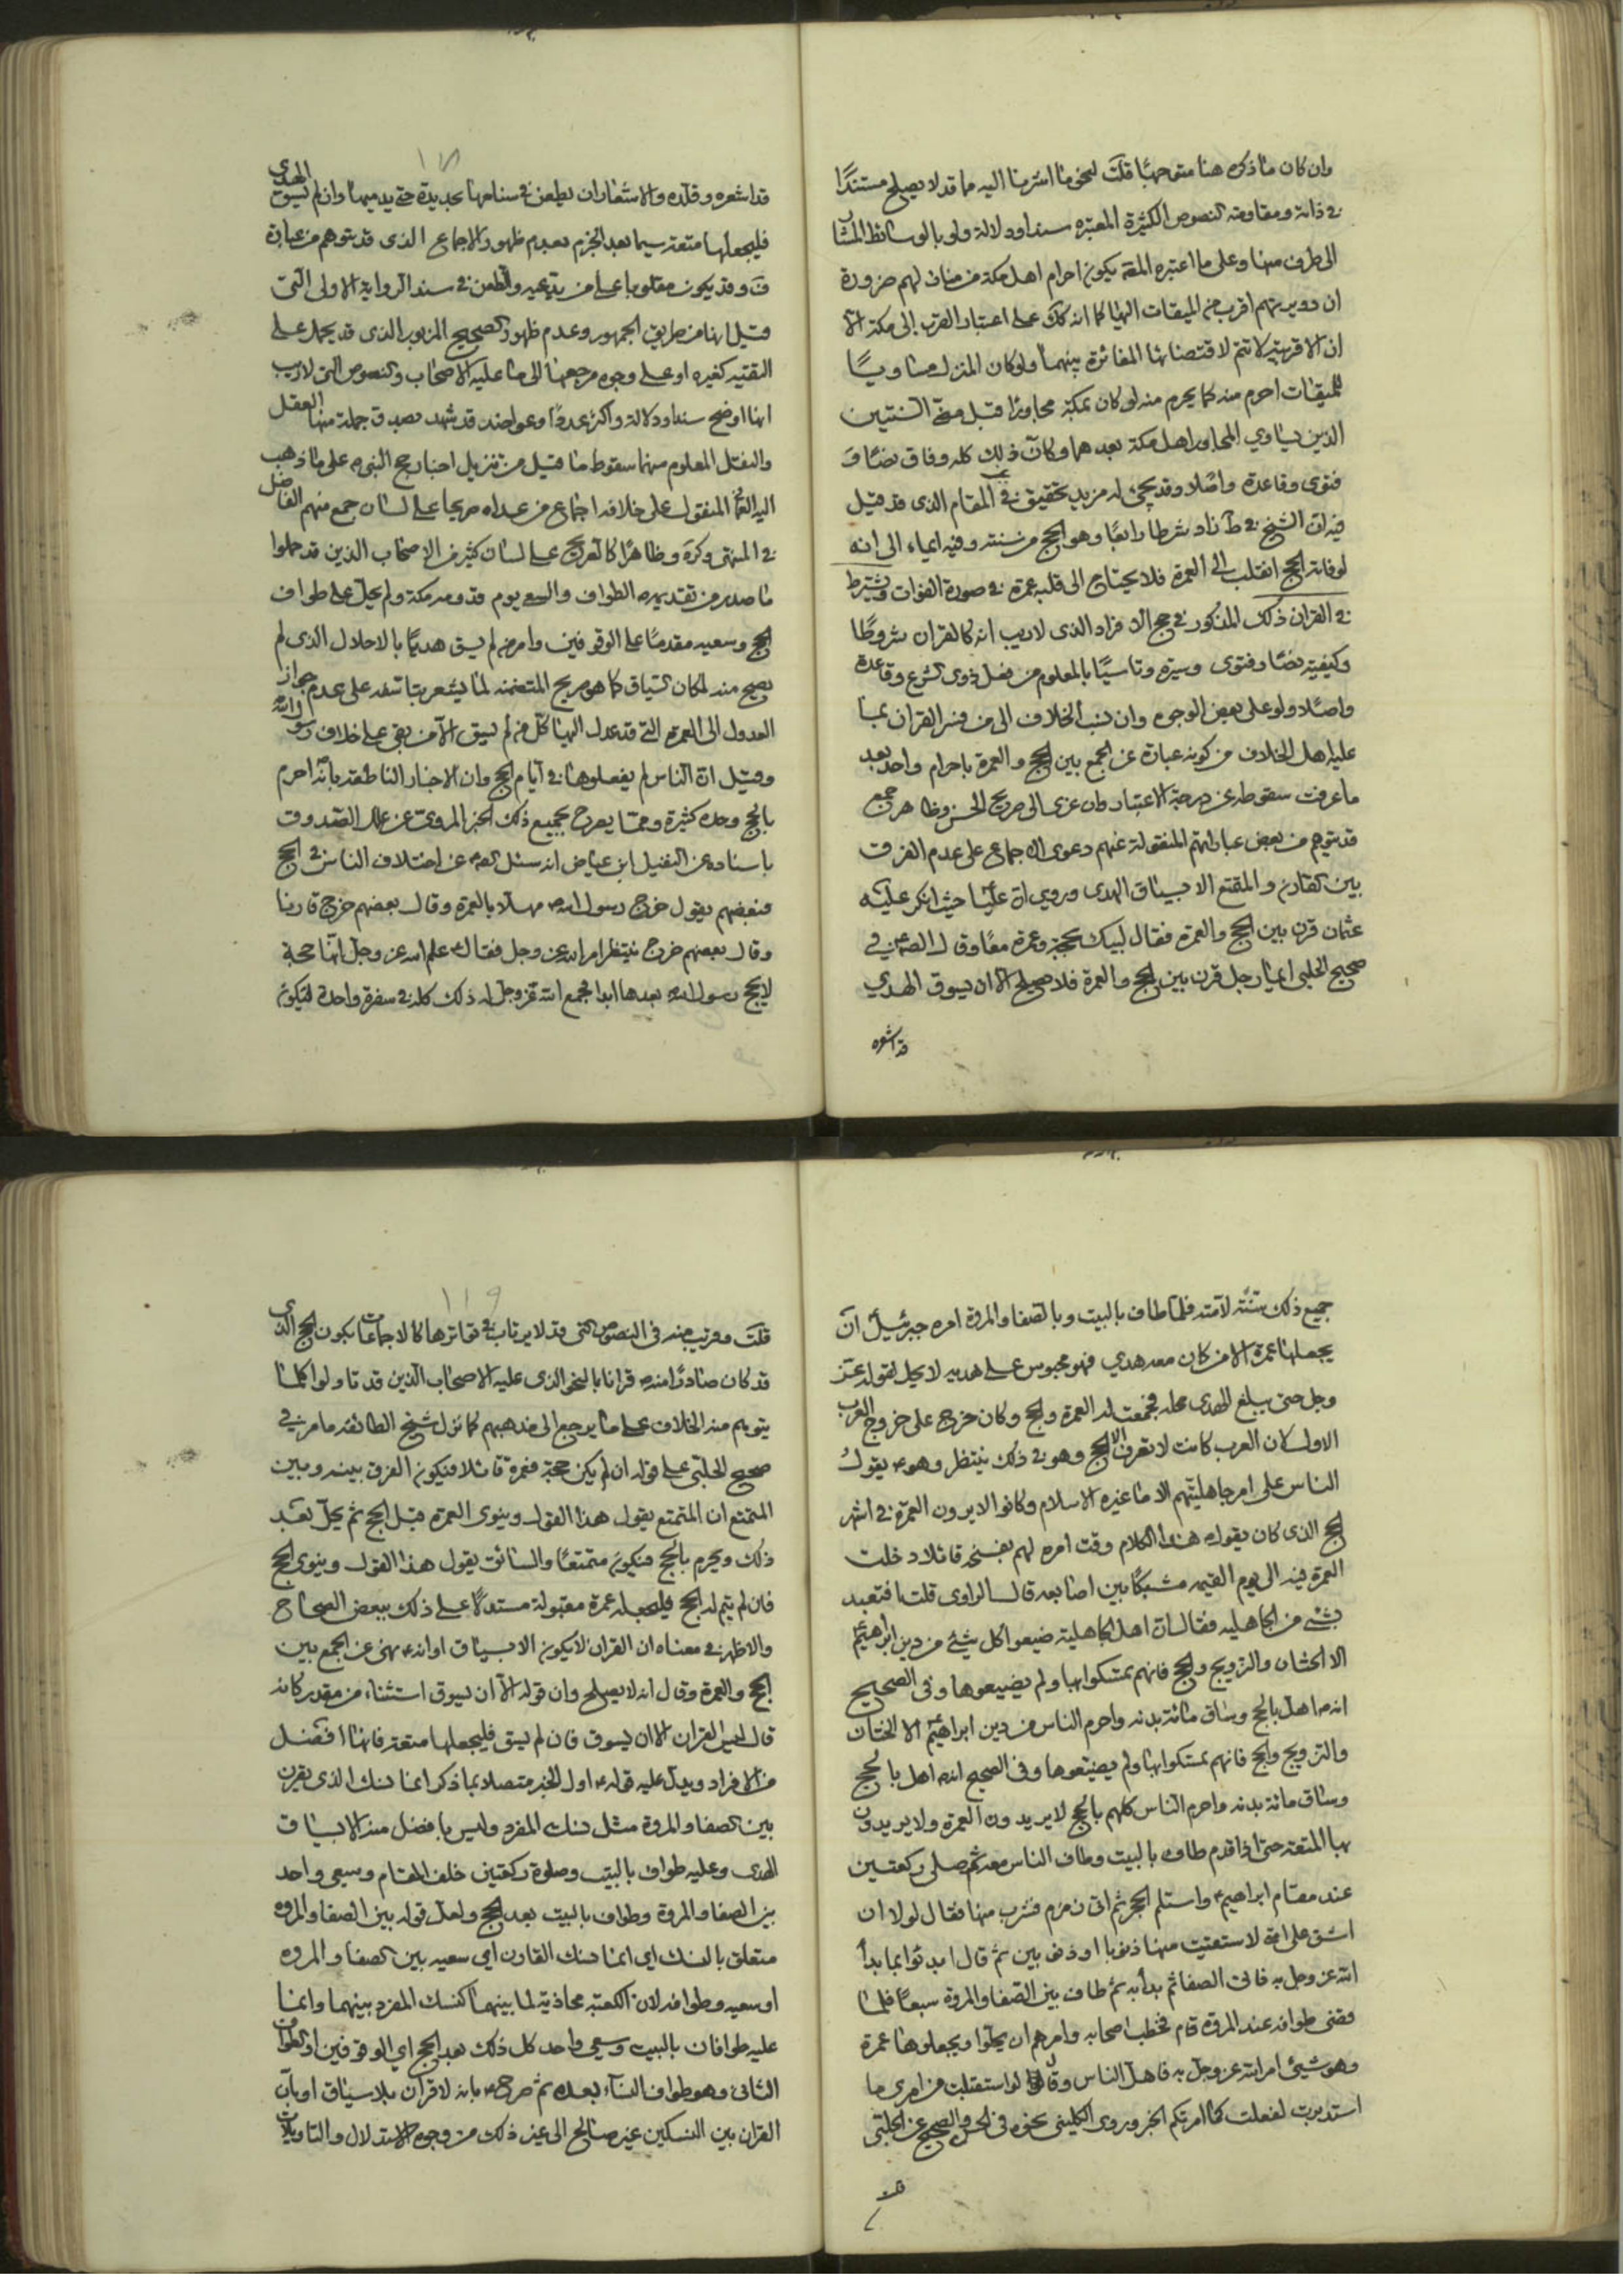 وان كان ما ذكره هنا متوجها قلت لنحو ما اشرنا اليه مما قد لا يصلح مستندًا
في ذاته ومقاومة النصوص الكثيرة المعتبره سندا ودلالة ولو بالوسائط المشار
الى طرف منها وعلى ما اعتبره المقه يكون احرام اهل مكة من منازلهم ضرورة
ان دويرتهم اقرب من الميقات اليها كما انه كك على اعتبار القرب الى مكة الا
ان الاقربية لا تتم لاقتضائها المغائرة بينهما ولو كان المنزل مساويًا
للميقات احرم منه كما يحرم منه لو كان بمكة مجاورًا قبل مضي السنتين
الذين يساوي المجاور اهل مكة بعدهما وكان ذلك كله وفاق نصًا و
فتوى وقاعدة واصلا وقد يجئ له مزيد تحقيق في المقام الذى قد قيل
فيه ان الشيخ في ط زاد شرطا رابعًا وهو الحج من سنته وفيه ايماء الى انه
لو فاته الحج انقلب الى العمرة فلا يحتاج الى قلبه عمرة في صورة الفوات ويشترط
في القران ذلك المذكور في حج الافراد الذى لاريب انه كالقران شروطًا
وكيفية نصًا وفتوى وسيرة وتاسيًا بالمعلوم من فعل ذوى الشرع وقاعدة
واصلا ولو على بعض الوجوه وان نسب الخلاف الى من فسر القران بما
عليه اهل الخلاف من كونه عبارة عن الجمع بين الحج والعمرة باحرام واحد بعد
ما عرفت سقوطه عن درجة الاعتبار وان عزى الى صريح الحسن وظاهر جمع
قد يتوهم من بعض عباراتهم المنقولة عنهم دعوى الاجماع على عدم الفرق
بين القارن والمقتع الا بسياق الهدى وروي ان عليًا حيث انكر عليه
عثمان قرن بين الحج والعمرة فقال لبيك بحجة وعمرة معًا وقال الص ع في
صحيح الحلبي ايما رجل قرن بين الحج والعمرة فلا صلح الا ان يسوق الهدي
قد اشعره
١١٨
قد اشعره وقلده والاشعار ان يطعن في سنامها بحديدة حتى يدميها وان لم يسق الهدى
فليجعلها متعة سيما بعد الجزم بعدم ظهور الاجماع الذى قد يتوهم من عبارة
ف وقد يكون مقلوبا على من يدعيه والطعن في سند الرواية الاولى التى
قيل انها من طريق الجمهور وعدم ظهور الصحيح المزبور الذى قد يحمل على
التقية كغيره او على وجوه مرجعها الى ما عليه الاصحاب والنصوص التى لاريب
انها اوضح سندا ودلالة واكثر عددًا وعواضد قد شهد بصدق جملة منها العقل
والنقل المعلوم منهما سقوط ما قيل من تنزيل اخبار حج النبي ص على ما ذهب
اليه العماني المنقول على خلافه اجماع من عداه صريحا على لسان جمع منهم الفاضل
في المنتهى وكرة وظاهرًا كالصريح على لسان كثير من الاصحاب الذين قد حملوا
ما صدر من تقديمه الطواف والسعي يوم قدومه مكة ولم يحل على طواف
الحج وسعيه مقدمًا على الوقوفين وامر من لم يسق هديًا بالاحلال الذى لم
يصح منه لمكان السياق كما هو صريح المتضمنه لما يشعر بتاسفه على عدم جواز
العدول الى العمرة التى قد عدل اليها كل من لم يسق الا من بقى على خلاف رسول الله
وقيل ان الناس لم يفعلوها في ايام الحج وان الاخبار الناطقه بانه احرم
بالحج وحده كثيرة ومما يصرح بجميع ذلك الخبر المروي عن علل الصدوق
باسناده عن الفضيل ابن عياض انه سئل الص ع عن اختلاف الناس في الحج
فبعضهم يقول خرج رسول الله ص مهلا بالعمرة وقال بعضهم خرج قارنا
وقال بعضهم خرج ينتظر امر الله عز وجل فقال ع علم الله عز وجل انها حجة
لا يحج رسول الله ص بعدها ابدا فجمع الله عز وجل له ذلك كله في سفرة واحدة ليكون
جميع ذلك سنّة لامته فلما طاف بالبيت وبالصفا والمروة امره جبرئيل ان
يجعلها عمرة الا من كان معه هدي فهو محبوس على هديه لا يحل لقوله عز
وجل حتى يبلغ الهدى محله فجمعت له العمرة والحج وكان خرج على خروج العرب
الاول لان العرب كانت لا تعرف الا الحج وهو في ذلك ينتظر وهو ع يقول
الناس على امر جاهليتهم الا ما غيره الاسلام وكانوا لا يرون العمرة في اشهر
الحج الذى كان يقول ص هذا الكلام وقت امره لهم بفسخه قائلا دخلت
العمرة فيه الى يوم القيمه مشبكًا بين اصابعه قال الراوى قلت افتعبد
بشئ من الجاهليه فقال ان اهل الجاهلية ضيعوا كل شئ من دين ابرهيم ع
الا الختان والتزويج والحج فانهم تمسكوا بها ولم يضيعوها وفى الصحيح
انه ص اهل بالحج وساق مائة بدنه واحرم الناس من دين ابراهيم ع الا الختان
والتزويج والحج فانهم تمسكوا بها ولم يضيعوها وفى الصحيح انه ص اهل بالحج
وساق مائة بدنه واحرم الناس كلهم بالحج لا يريدون العمرة ولا يريدون
بها المتعة حتى اذا قدم طاف بالبيت وطاف الناس معه ثم صلى ركعتين
عند مقام ابراهيم ع واستلم الحجر ثم اتى زمزم فشرب منها فقال لولا ان
اشق على امتي لاستقيت منها ذنوبا او ذنوبين ثم قال ابدئوا بما بدأ
الله عز وجل به فاتى الصفا ثم بدأ به ثم طاف بين الصفا والمروة سبعًا فلما
قضى طوافه عند المروة قام فخطب اصحابه وامرهم ان يحلوا ويجعلوها عمرة
وهو شيئ امر الله عز وجل به فاهل الناس وقال لو استقبلت من امرى ما
استدبرت لفعلت كما امرتكم الخبر وروى الكليني نحوه في الحسن والصحيح عن الحلبى
قلت
١١٩
قلت وقريب منه في النصوص التى قد لا يرتاب في تواترها كالاجماعات بكون الحج الذى
قد كان صادرًا منه ص قرانا بالنحو الذى عليه الاصحاب الذين قد تاولوا كلما
يتوهم منه الخلاف على ما يرجع الى مذهبهم كما نزل شيخ الطائفه ما مر في
صحيح الحلبى على قوله ان لم يكن حجة فعمرة قائلا فيكون الفرق بينه وبين
المتمتع ان المتمتع يقول هذا القول وينوى العمرة قبل الحج ثم يحل بعد
ذلك ويحرم بالحج فيكون متمتعًا والسائق يقول هذا القول وينوى الحج
فان لم يتم له الحج فليجعله عمرة مقبولة مستدلًا على ذلك ببعض الصحاح
والاظهر في معناه ان القران لا يكون الا بسياق او انه ع نهى عن الجمع بين
الحج والعمرة وقال انه لا يصلح وان قوله الا ان يسوق استثناء من مقدر كانه
قال ليس القران الا ان يسوق فان لم يسق فليجعلها متعة فانها افضل
من الافراد ويدل عليه قوله ع اول الخبر متصلا بما ذكر انما نسك الذى يقرن
بين الصفا والمروة مثل نسك المفرد وليس بافضل منه الا بسياق
الهدى وعليه طواف بالبيت وصلوة ركعتين خلف المقام وسعي واحد
بين الصفا والمروة وطواف بالبيت بعد الحج ولعل قوله بين الصفا والمروه
متعلق بالنسك اي انما نسك القارن اي سعيه بين الصفا والمروه
او سعيه وطوافه لان الكعبه محاذية لما بينهما كنسك المفرد بينهما وانما
عليه طوافان بالبيت وسعي واحد كل ذلك بعد الحج اي الوقوفين او الطواف
الثانى وهو طواف النساء بعده ثم صرح ع بانه لا قران بلا سياق او بان
القران بين النسكين غير صالح الى غير ذلك من وجوه الاستدلال والتاويلات